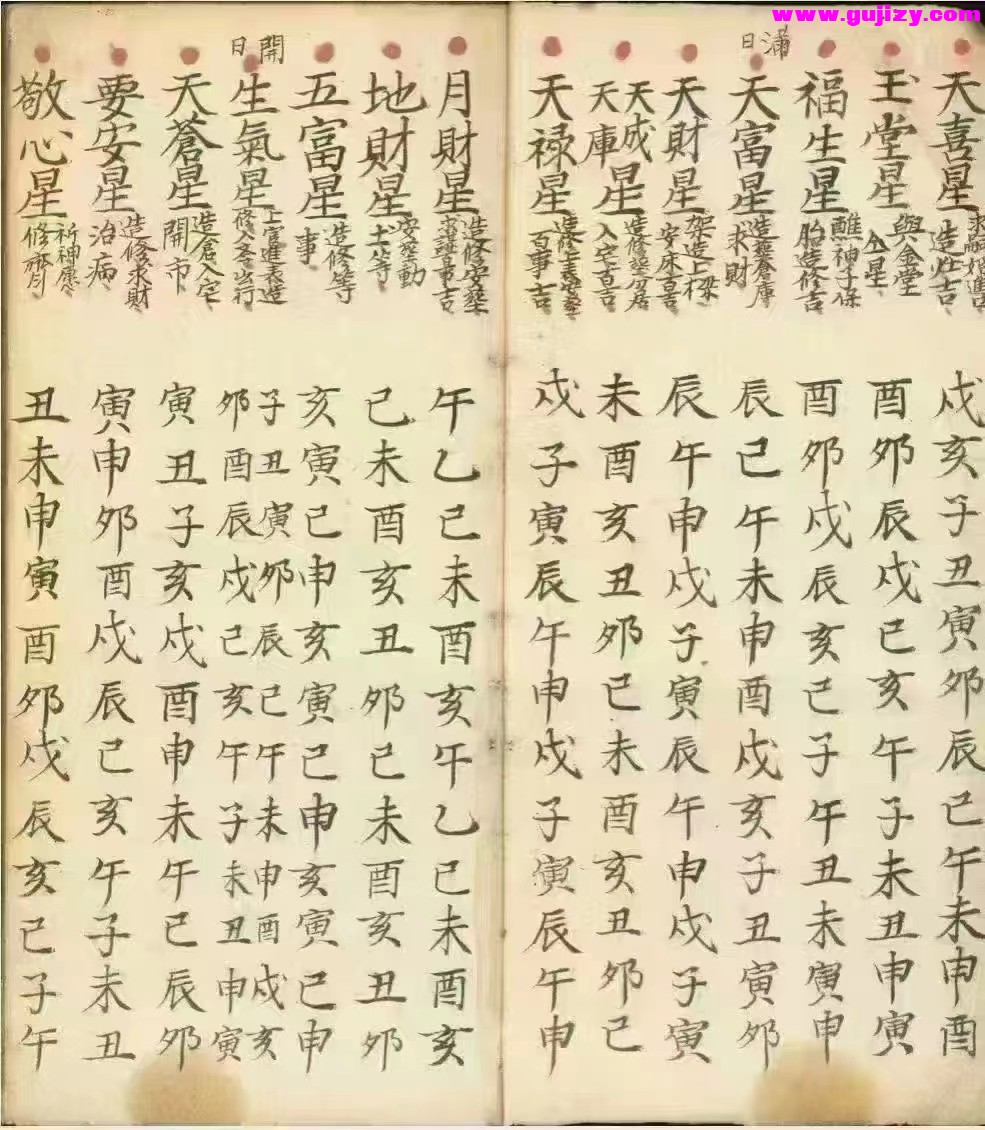 www.gujizy.com
天喜星
造灶吉
戌亥子丑寅卯辰己午未申酉
玉堂星
與金堂
仝星
酉卯辰戌己亥午子未丑申寅
福生星
醮神子保
胎造修吉
酉卯戌辰亥己子午丑未寅申
滿日
天富星
造葬倉庫
求財
辰己午未申酉戌亥子丑寅卯
天財星
架造上樑
安床百吉
辰午申戌子寅辰午申戌子寅
天成
天庫
星
造修葬分居
入宅百吉
未酉亥丑卯己未酉亥丑卯己
天禄星
造修上表安葬
百事吉
戌子寅辰午申戌子寅辰午申
月財星
造修安葬
事吉
午乙己未酉亥午乙己未酉亥
地財星
安葬動
土等
己未酉亥丑卯己未酉亥丑卯
五富星
造修等
事
亥寅己申亥寅己申亥寅己申
開日
生氣星
上官進表造
修入出行
子丑寅卯辰己午未申酉戌亥
卯酉辰戌己亥午子未丑申寅
天蒼星
造倉入宅
開市
寅丑子亥戌酉申未午己辰卯
要安星
造修求財
治病
寅申卯酉戌辰己亥午子未丑
敬心星
祈神愿
修齋
丑未申寅酉卯戌辰亥己子午